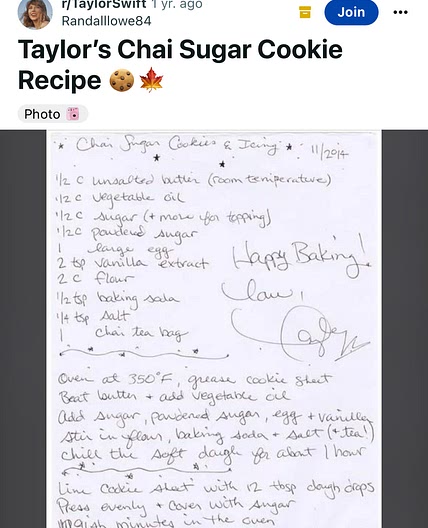 r/TaylorSwift 1 yr. ago
Randalllowe84
Join
Taylor's Chai Sugar Cookie
Recipe 🍪🍁
Photo
★ Chai Sugar Cookies & Icing ★ 11/2014
1/2 c unsalted butter (room temperature)
1/2 c vegetable oil
1/2 c sugar (+ more for topping)
1/2 c powdered sugar
1 large egg
2 tsp vanilla extract
2 c flour
1/2 tsp baking soda
1/4 tsp salt
1 chai tea bag
Happy Baking!
Love,
Taylor
Oven at 350°F, grease cookie sheet
Beat butter + add vegetable oil
Add sugar, powdered sugar, egg + vanilla
Stir in flour, baking soda + salt (+ tea!)
chill the soft dough for about 1 hour
Line cookie sheet with 12 tbsp dough drops
Press evenly + cover with sugar
minutes in the oven